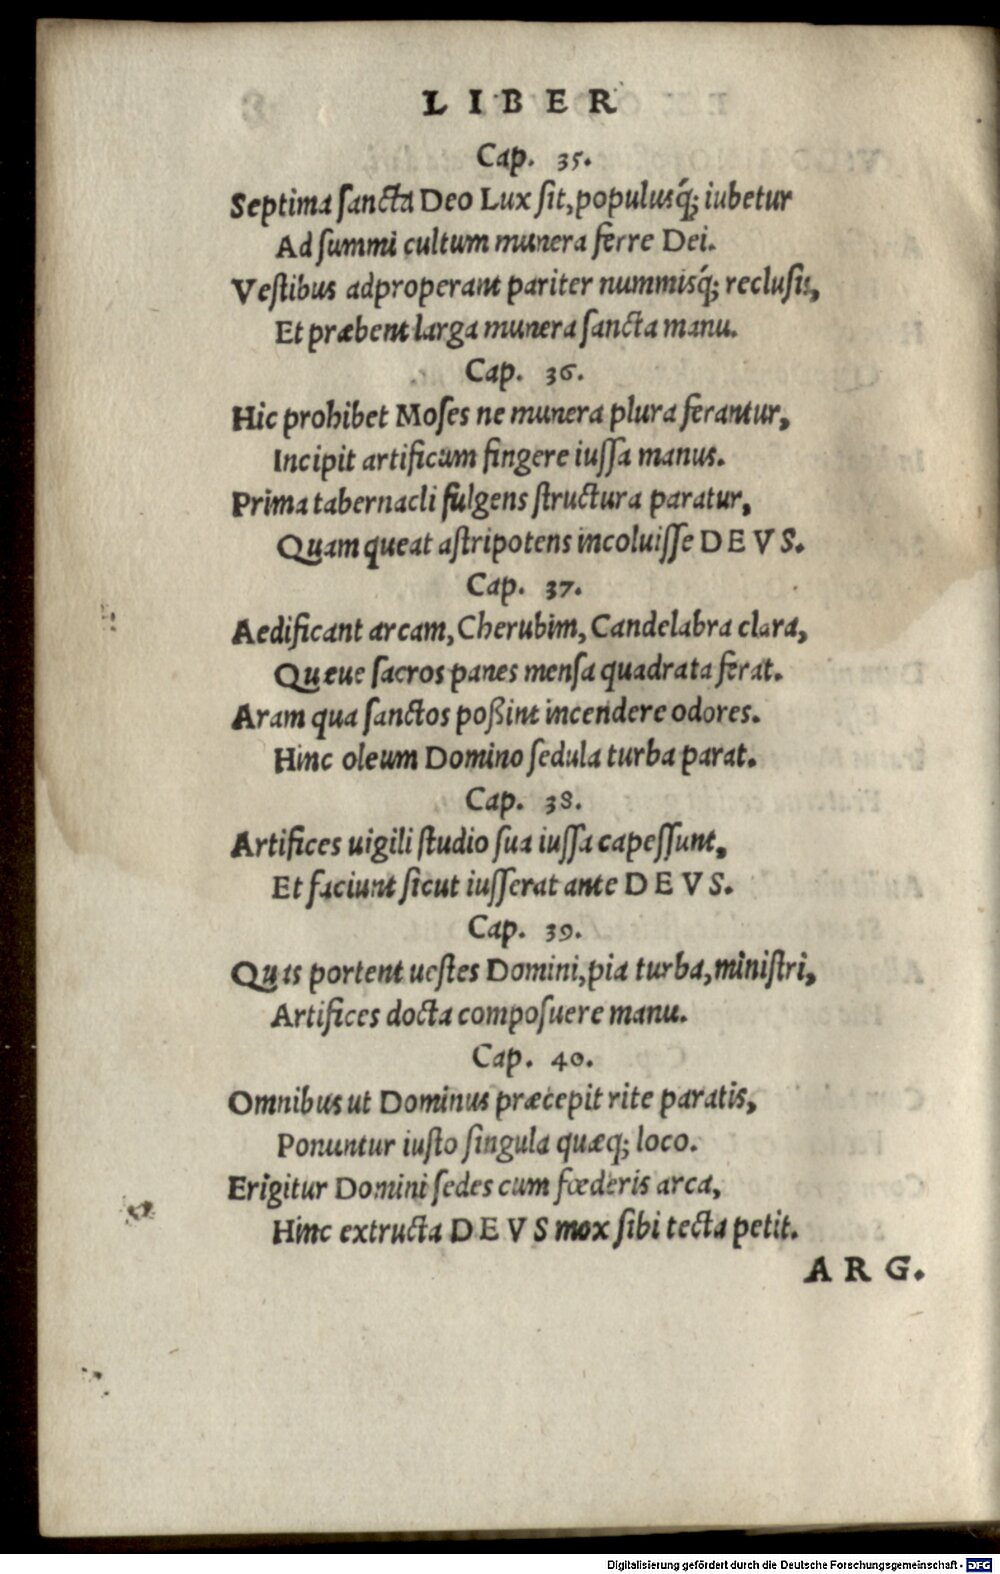 LIBER
Cap. 35.
Septima sancta Deo Lux sit, populusq́; iubetur
Ad summi cultum munera ferre Dei.
Vestibus adproperant pariter nummisq́; reclusis,
Et præbent larga munera sancta manu.
Cap. 36.
Hic prohibet Moses ne munera plura ferantur,
Incipit artificum fingere iussa manus.
Prima tabernacli fulgens structura paratur,
Quam queat astripotens incoluisse DEVS.
Cap. 37.
Aedificant arcam, Cherubim, Candelabra clara,
Quæue sacros panes mensa quadrata ferat.
Aram qua sanctos poßint incendere odores.
Hinc oleum Domino sedula turba parat.
Cap. 38.
Artifices uigili studio sua iussa capessunt,
Et faciunt sicut iusserat ante DEVS.
Cap. 39.
Quas portent uestes Domini, pia turba, ministri,
Artifices docta composuere manu.
Cap. 40.
Omnibus ut Dominus præcepit rite paratis,
Ponuntur iusto singula quæq; loco.
Erigitur Domini sedes cum fœderis arca,
Hinc extructa DEVS mox sibi tecta petit.
ARG.
Digitalisierung gefördert durch die Deutsche Forschungsgemeinschaft - DFG